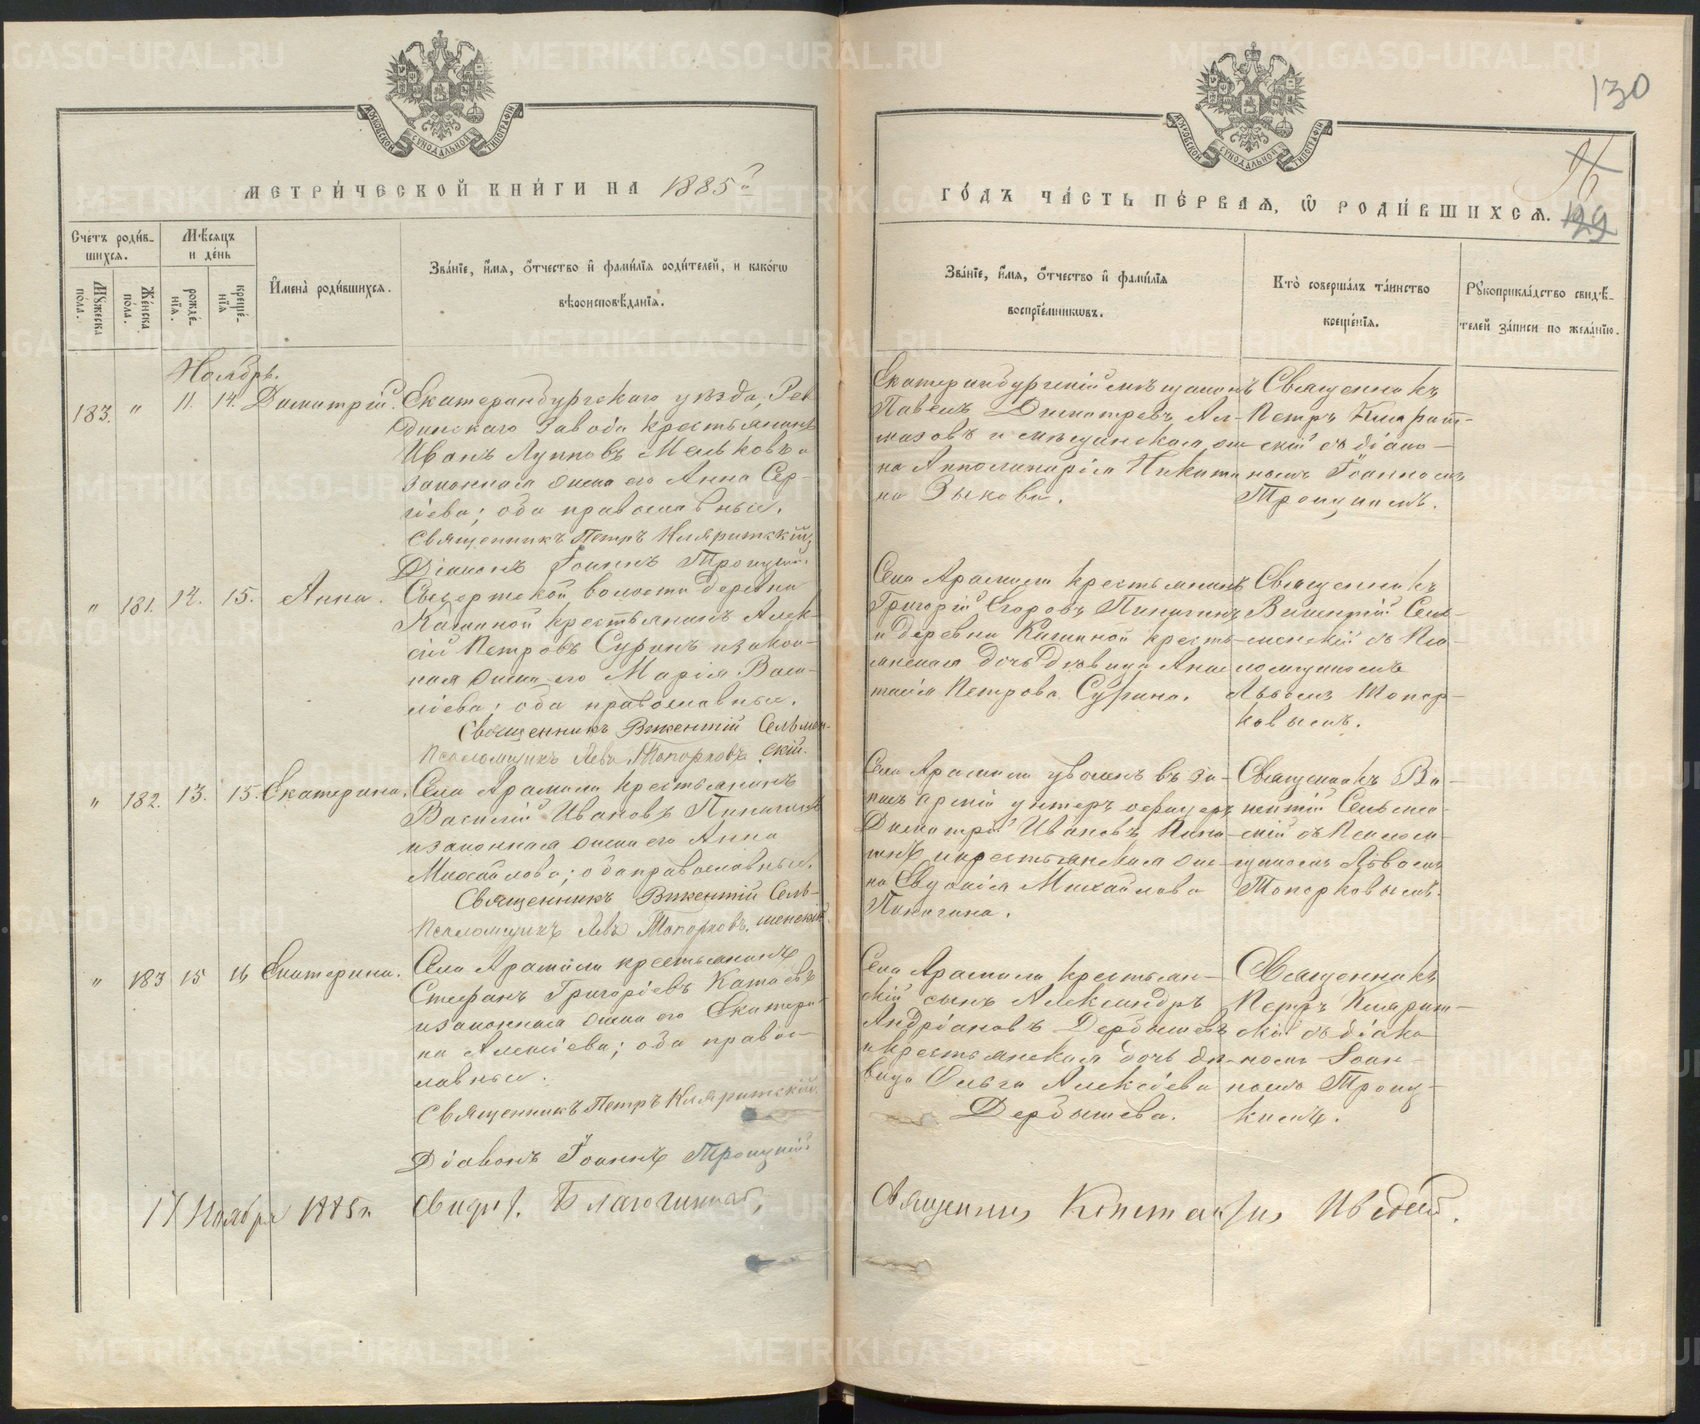 METRIKI.GASO-URAL.RU
130
96
129
МОСКОВСКОЙ СѴНОДАЛЬНОЙ ТИПОГРАФІИ
МЕТРИ́ЧЕСКОЙ КНИ́ГИ НА 1885 г.
ГО́ДЪ ЧА́СТЬ ПЕ́РВАѦ, Ѽ РОДИ́ВШИХСѦ.
Сче́тъ роди́в-
шихся.
Мѣ́сяцъ
и де́нь
Мꙋ́жеска
по́ла.
Же́нска
по́ла.
рожде́-
нїя.
креще́-
нїя
И҆мена̀ роди́вшихся.
Зва́нїе, и҆́мя, ѻ҆́тчество и҆ фами́лїя роди́телей, и како́гѡ
вѣроисповѣ́данїя.
Зва́нїе, и҆́мя, ѻ҆́тчество и҆ фами́лїя
воспрїе́мникѡвъ.
Кто̀ соверша́лъ та́инство
креще́нїя.
Рꙋкоприкла́дство свидѣ́-
телей за́писи по жела́нїю.
Ноябрь.
183. " 11. 14. Димитрій.
Екатеринбургскаго уѣзда, Рев
динскаго завода крестьянинъ
Иванъ Лупповъ Мельковъ и
законная жена его Анна Сер-
гіева; оба православные.
Священникъ Петръ Кляритскій
Діаконъ Іоаннъ Троицкій
Екатеринбургскій мѣщанинъ
Павелъ Димитріевъ Ал-
мазовъ и мѣщанская же-
на Апполинарія Никити
на Зыкова.
Священникъ
Петръ Кляритс-
кій съ діако-
номъ Іоанномъ
Троицкимъ.
" 181. 14. 15. Анна.
Сысертской волости деревни
Кашиной крестьянинъ Алек-
сій Петровъ Суринъ и закон-
ная жена его Марія Васи-
ліева; оба православные.
Священникъ Викентій Сельмен-
скій.
Псаломщикъ Левъ Топорковъ
Села Арамили крестьянинъ
Григорій Егоровъ Пинигинъ
и деревни Кашиной кресть-
янская дочь девица Анас
тасія Петрова Сурина.
Священникъ
Викентій Сель-
менскій съ Пса-
ломщикомъ
Львомъ Топор-
ковымъ.
" 182. 13. 15. Екатерина.
Села Арамили крестьянинъ
Василій Ивановъ Пинигинъ
и законная жена его Анна
Михайлова; оба православные.
Священникъ Викентій Сель-
менскій
Псаломщикъ Левъ Топорковъ.
Села Арамили уволенъ въ за-
пасъ арміи унтеръ офицеръ
Димитрій Ивановъ Пини-
гинъ и крестьянская же-
на Евдокія Михайлова
Пинигина.
Священникъ Ви-
кентій Сельмен-
скій съ Псалом-
щикомъ Львомъ
Топорковымъ.
" 183 15 16 Екатерина.
Села Арамили крестьянинъ
Стефанъ Григоріевъ Катаевъ
и законная жена его Екатери-
на Алексіева; оба право-
славные.
Священникъ Петръ Кляритскій.
Діаконъ Іоаннъ Троицкій
Села Арамили крестьян-
скій сынъ Александръ
Андріановъ Дербышевъ
и крестьянская дочь де-
вица Ольга Алексіева
Дербышева.
Священникъ
Петръ Клярит-
скій съ діако-
номъ Іоан-
номъ Троиц-
кимъ.
17 Ноября 1885 г. Свидѣт. Благочинный,
Священникъ Константинъ